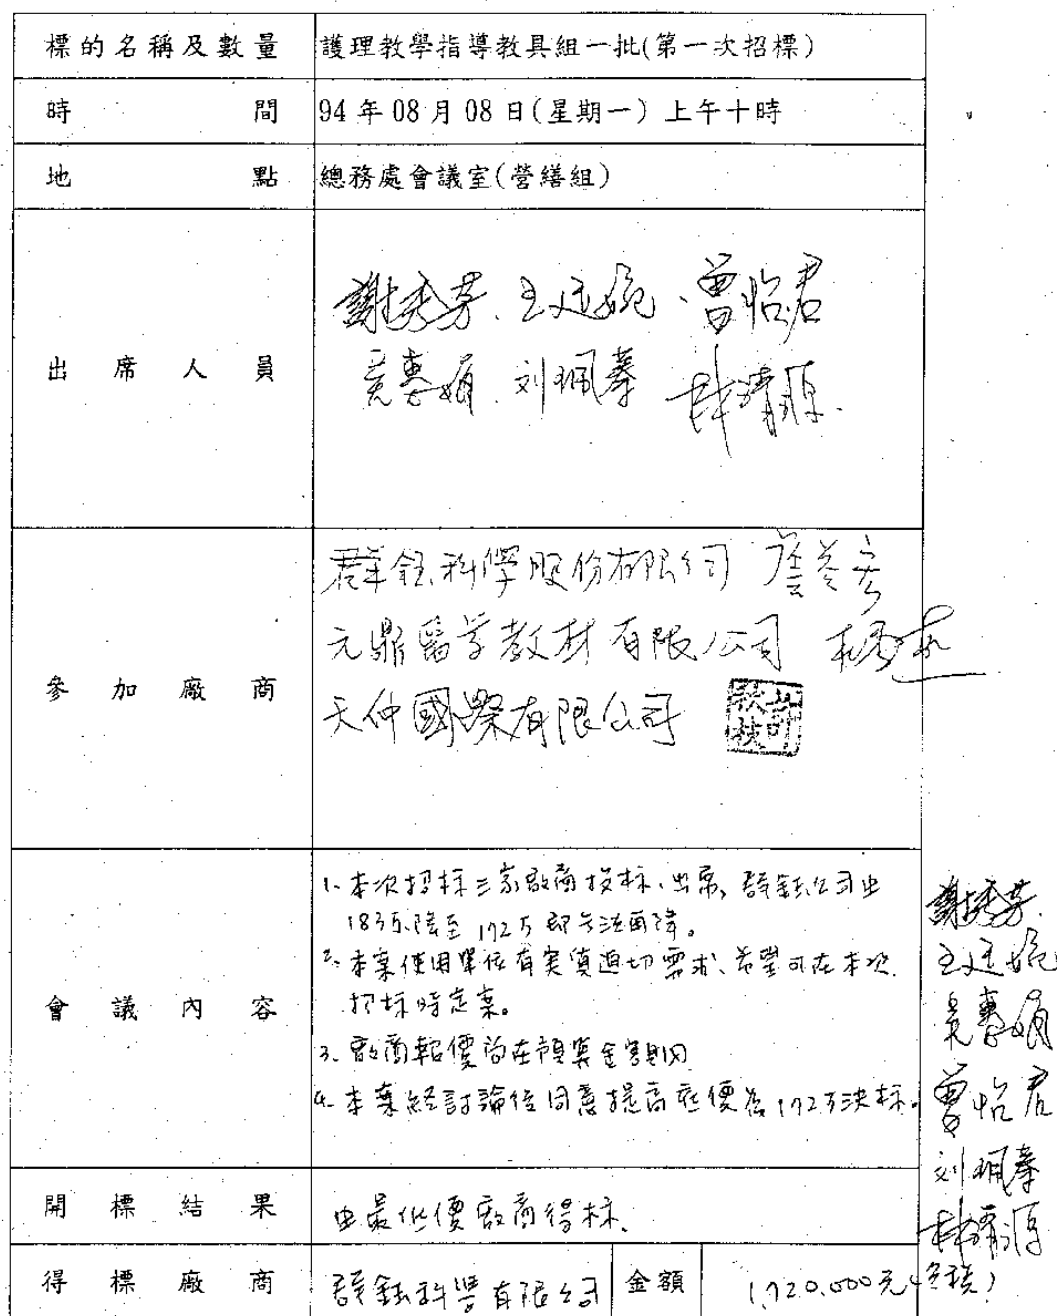 標的名稱及數量 護理教學指導教具組一批(第一次招標)
時間 94年08月08日(星期一) 上午十時
地點 總務處會議室(營繕組)
出席人員
謝秀芳、王廷婉、曾怡君
吳惠娟、刘珮蓁
參加廠商
群鈺科學股份有限公司
元鼎醫学教材有限公司
天仲國際有限公司 許秋枝
會議內容
1. 本次招标三家廠商投标、出席,群鈺公司由
183万降至172万即無法再降。
2. 本案使用單位有实質迫切需求、希望可在本次
招标時定案。
3. 廠商報價尚在預算金額內
4. 本案經討論後同意提高底價為172万決标。
謝秀芳
王廷婉
吳惠娟
曾怡君
刘珮蓁
開標結果 由最低價廠商得标.
得標廠商 群鈺科學有限公司 金額 1,720,000元(含稅)